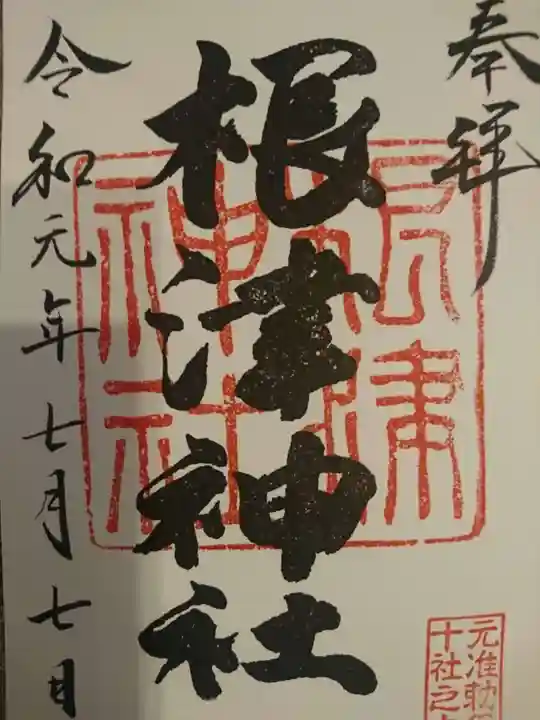 奉拝
根津神社
根津
神社
元准勅
十社之
令和元年七月七日